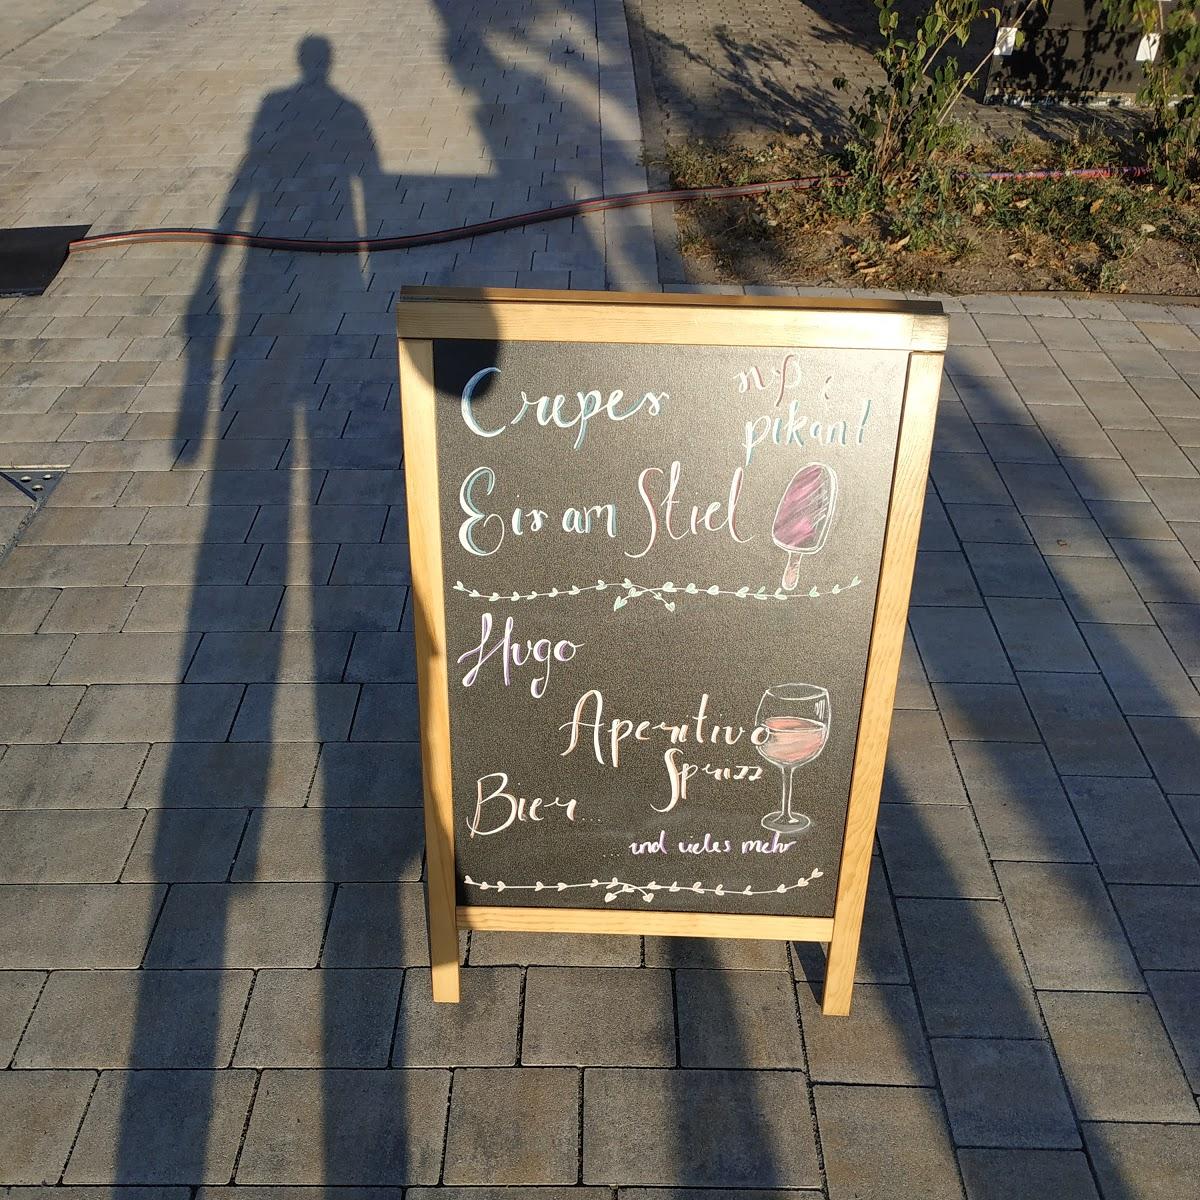 Crepes süß &
pikant
Eis am Stiel
Hugo
Aperitivo
Sprizz
Bier...
...und vieles mehr